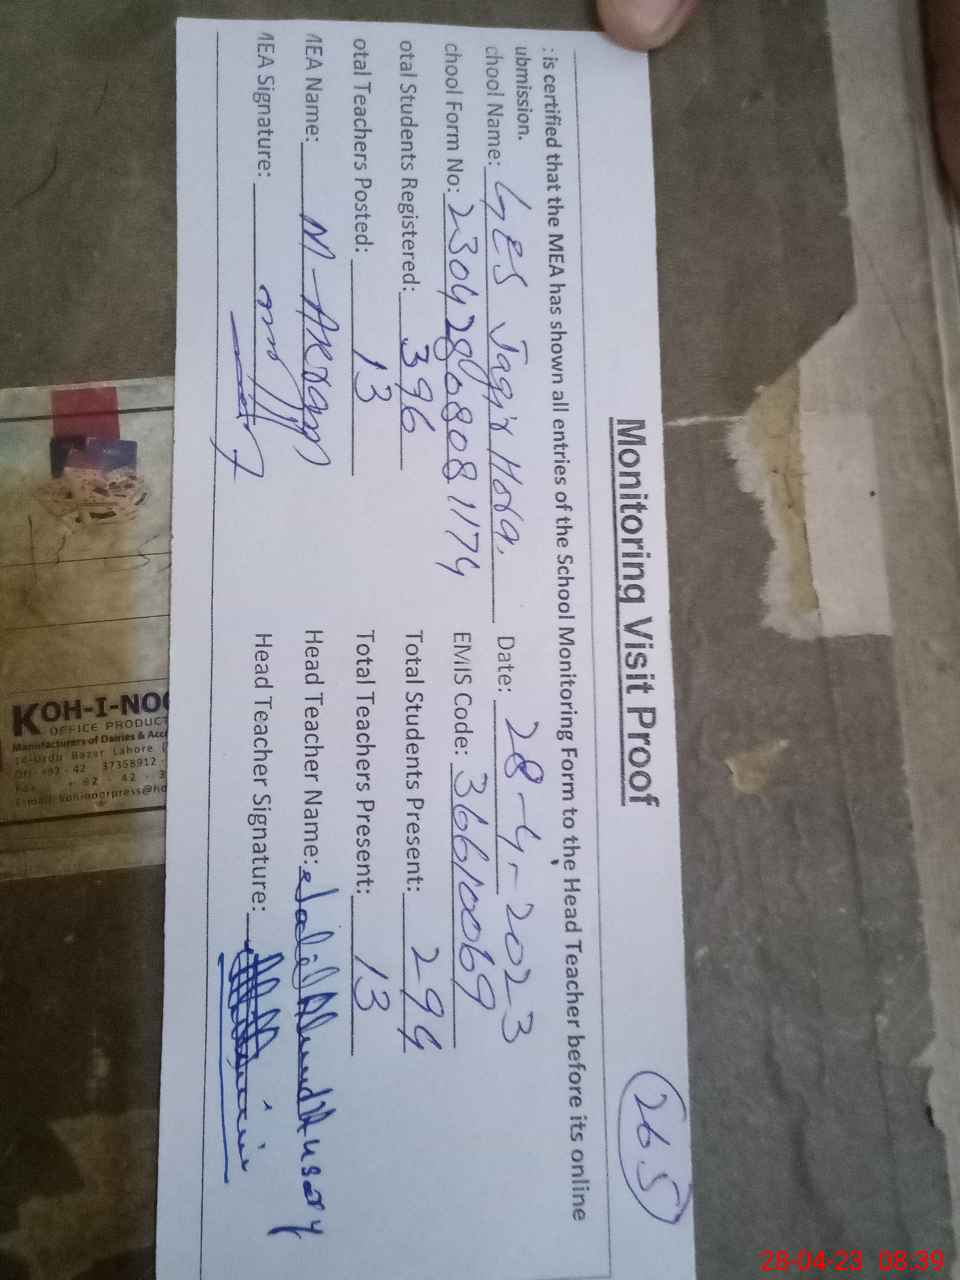 Monitoring Visit Proof
265
: is certified that the MEA has shown all entries of the School Monitoring Form to the Head Teacher before its online
ubmission.
chool Name: GES Jagir Hora. Date: 28-4-2023
chool Form No: 23042806808 1174 EMIS Code: 36610069
otal Students Registered: 396 Total Students Present: 294
otal Teachers Posted: 13 Total Teachers Present: 13
MEA Name: M-Akram Head Teacher Name:
MEA Signature: Head Teacher Signature:
KOH-I-NOO
OFFICE PRODUCT
Manufacturers of Dairies & Acc
14-Urdu Bazar Lahore
37358912
28-04-23 08:39